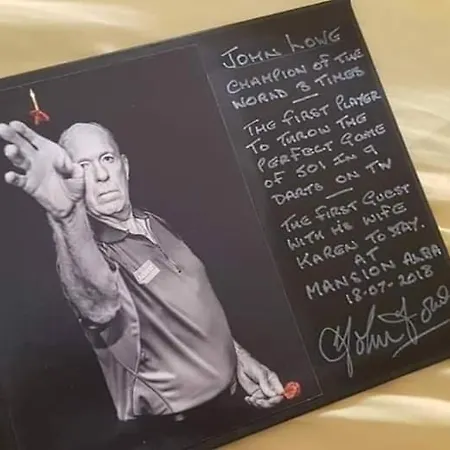 JOHN LOWE
CHAMPION OF THE
WORLD 3 TIMES
THE FIRST PLAYER
TO THROW THE
PERFECT GAME
OF 501 IN 9
DARTS ON TV
THE FIRST GUEST
WITH HIS WIFE
KAREN TO STAY.
AT
MANSION ALBA
18-07-2018
John Lowe